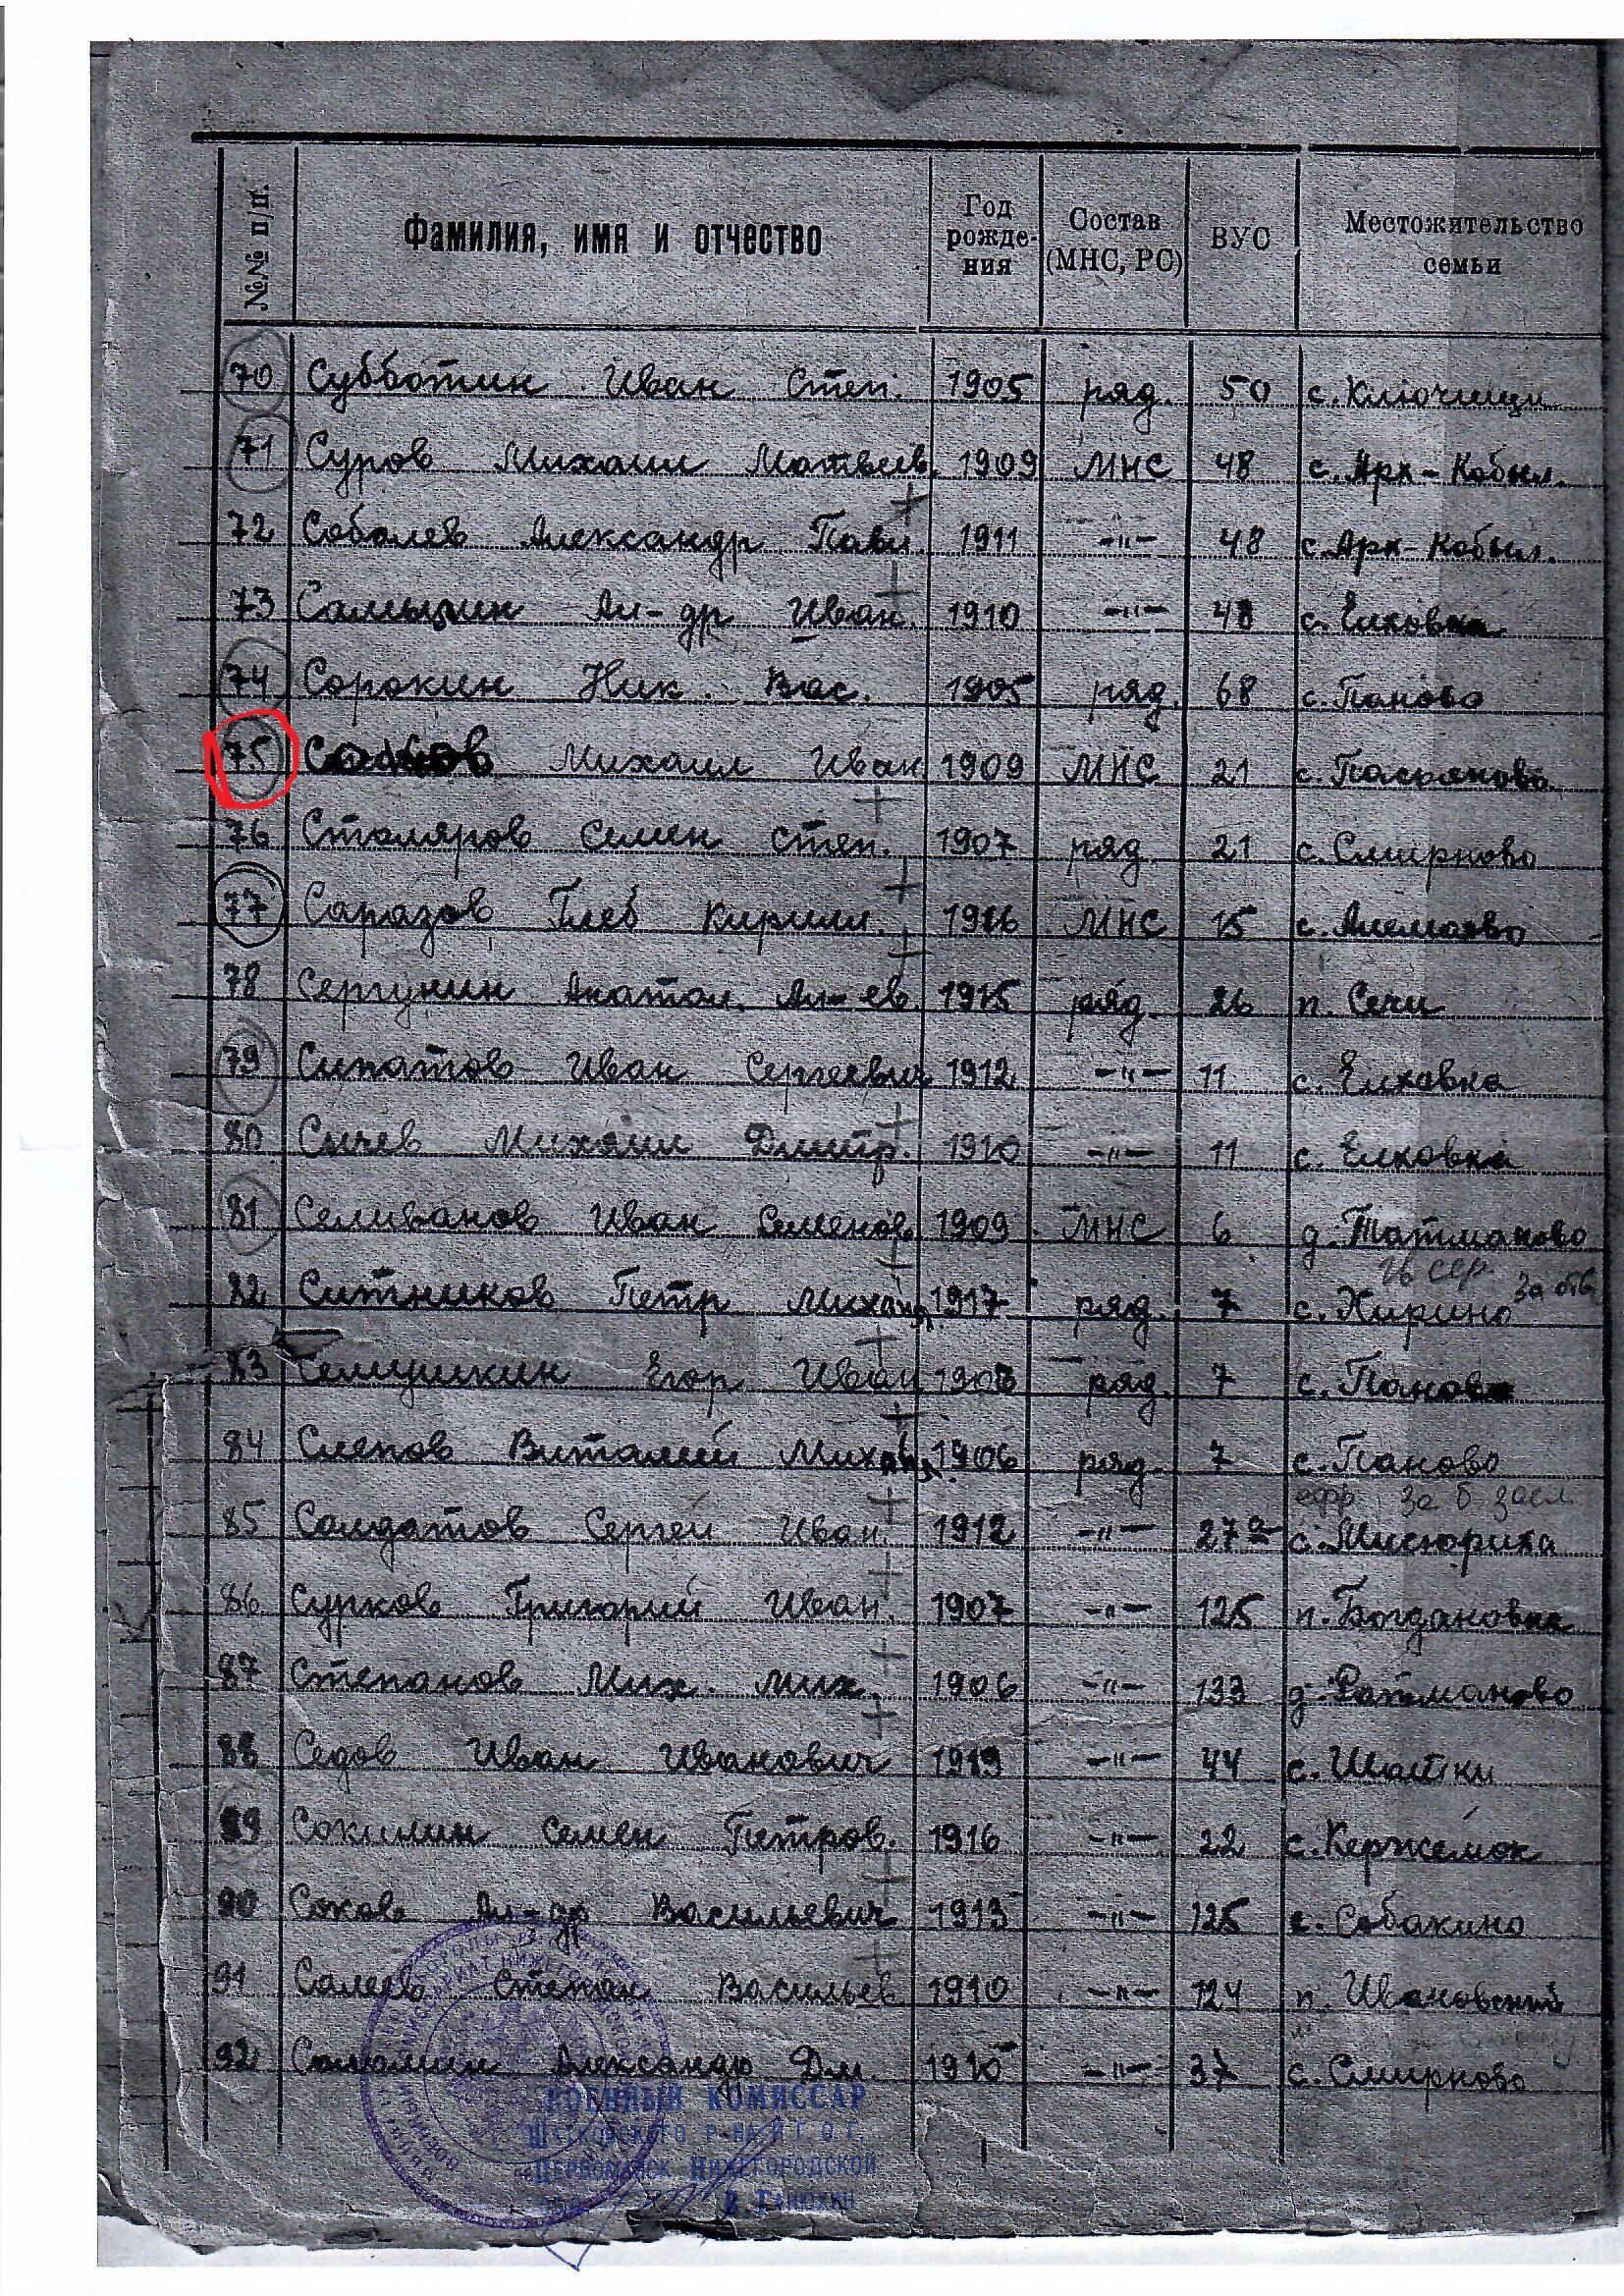 №№ п/п. Фамилия, имя и отчество Год рожде- ния Состав (МНС, РС) ВУС Местожительство семьи
70 Субботин Иван Степ. 1905 ряд. 50 с. Ключищи
71 Суров Михаил Матвеев. 1909 МНС 48 с. Арх-Кобыл.
72 Соболев Александр Павл. 1911 -"- 48 с. Арх-Кобыл.
73 Ал-др Иван. 1910 -"- 48 с. Елховка
74 Сорокин Ник. Вас. 1905 ряд. 68 с. Паново
75 Михаил Иван 1909 МНС 21 с. Пасьяново
76 Столяров Семен Степ. 1907 ряд. 21 с. Смирново
77 Саразов Глеб Кирилл. 1916 МНС 15 с. Алемаево
78 Сергунин Анатол. Ал-ев. 1915 ряд. 26 п. Сечи
79 Сипатов Иван Сергеевич 1912 -"- 11 с. Елховка
80 Сычев Михаил Дмитр. 1910 -"- 11 с. Елховка
81 Селиванов Иван Семенов. 1909 МНС 6 д.
82 Ситников Петр Михайл. 1917 ряд. 7 с. Хирино
83 Семушкин Егор Иван 1908 ряд. 7 с. Паново
84 Слепов Виталий Михайл. 1906 ряд. 7 с. Паново
85 Солдатов Сергей Иван. 1912 -"- 27 с. Мисюриха
86 Сурков Григорий Иван. 1907 -"- 125 п. Богдановка
87 Степанов Мих. Мих. 1906 -"- 133 д. Ратманово
88 Седов Иван Иванович 1919 -"- 44 с. Шатки
89 Сокилин Семен Петров. 1916 -"- 22 с. Кержемок
90 Соков Ал-др Васильевич 1913 -"- 125 с. Собакино
91 Салеев Степан Васильев 1910 -"- 124 п. Ивановский
92 Александр Дм. 1910 -"- 37 с. Смирново
ВОЕННЫЙ КОМИССАР
Шатковского р-на и г.о.г.
Первомайск Нижегородской